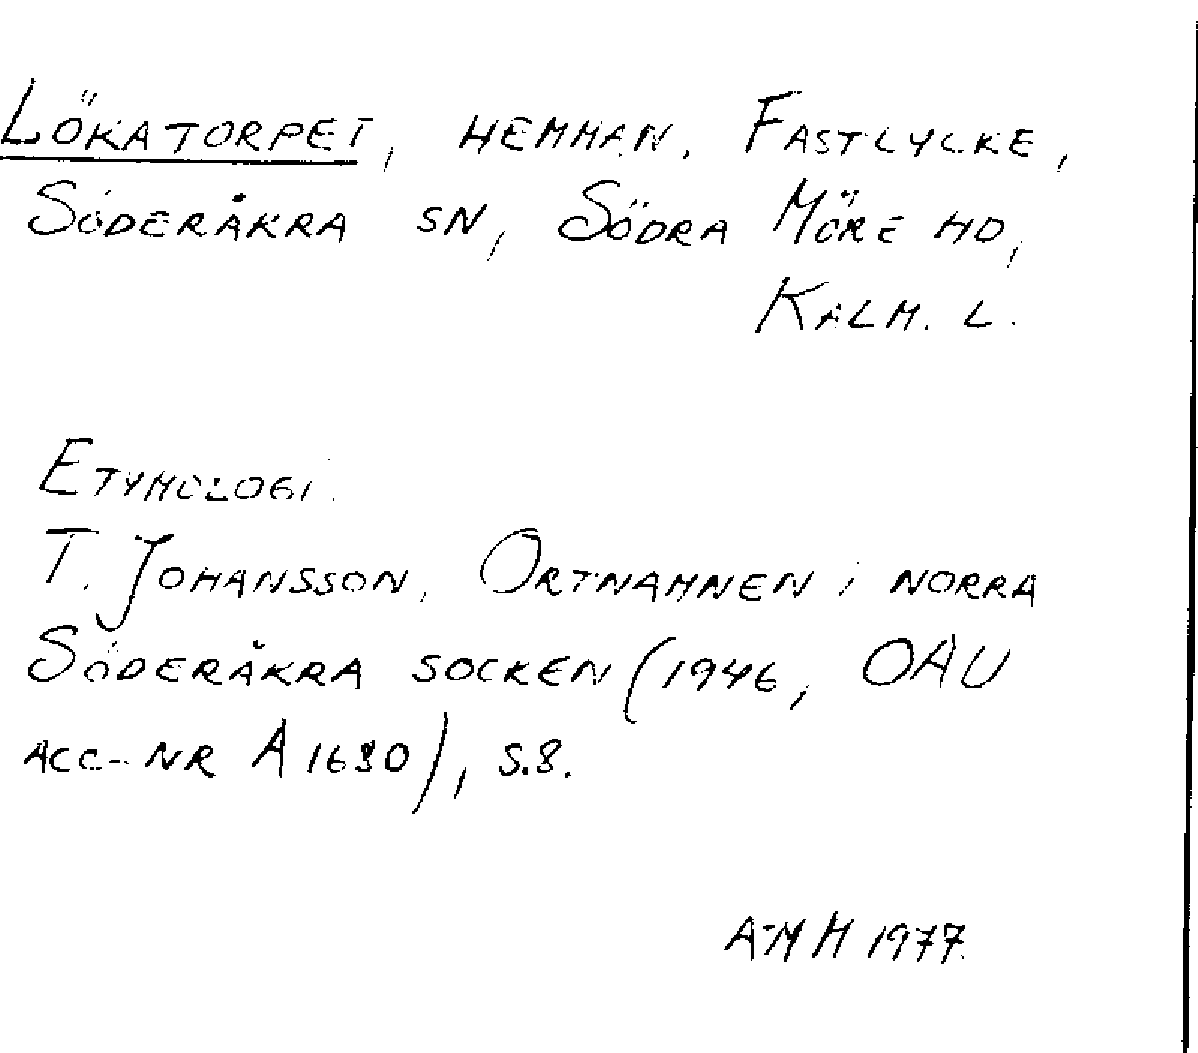 LÖKATORPET, HEMMAN, FASTLYCKE,
SÖDERÅKRA SN, SÖDRA MÖRE HD,
KALM. L.
ETYMOLOGI.
T. JOHANSSON, ORTNAMNEN i NORRA
SÖDERÅKRA SOCKEN (1946, OAU
ACC-NR A 1680), S.8.
A-MH 1977.